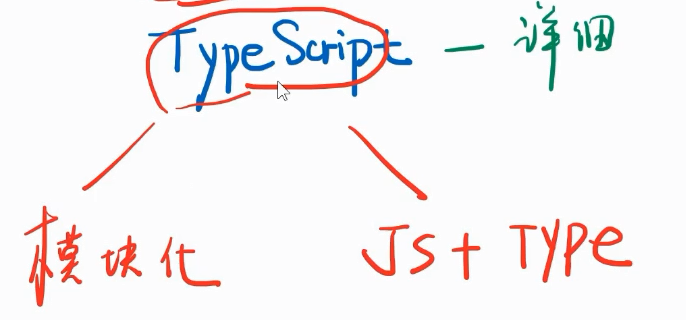 TypeScript — 详细
模块化 JS + TYPe